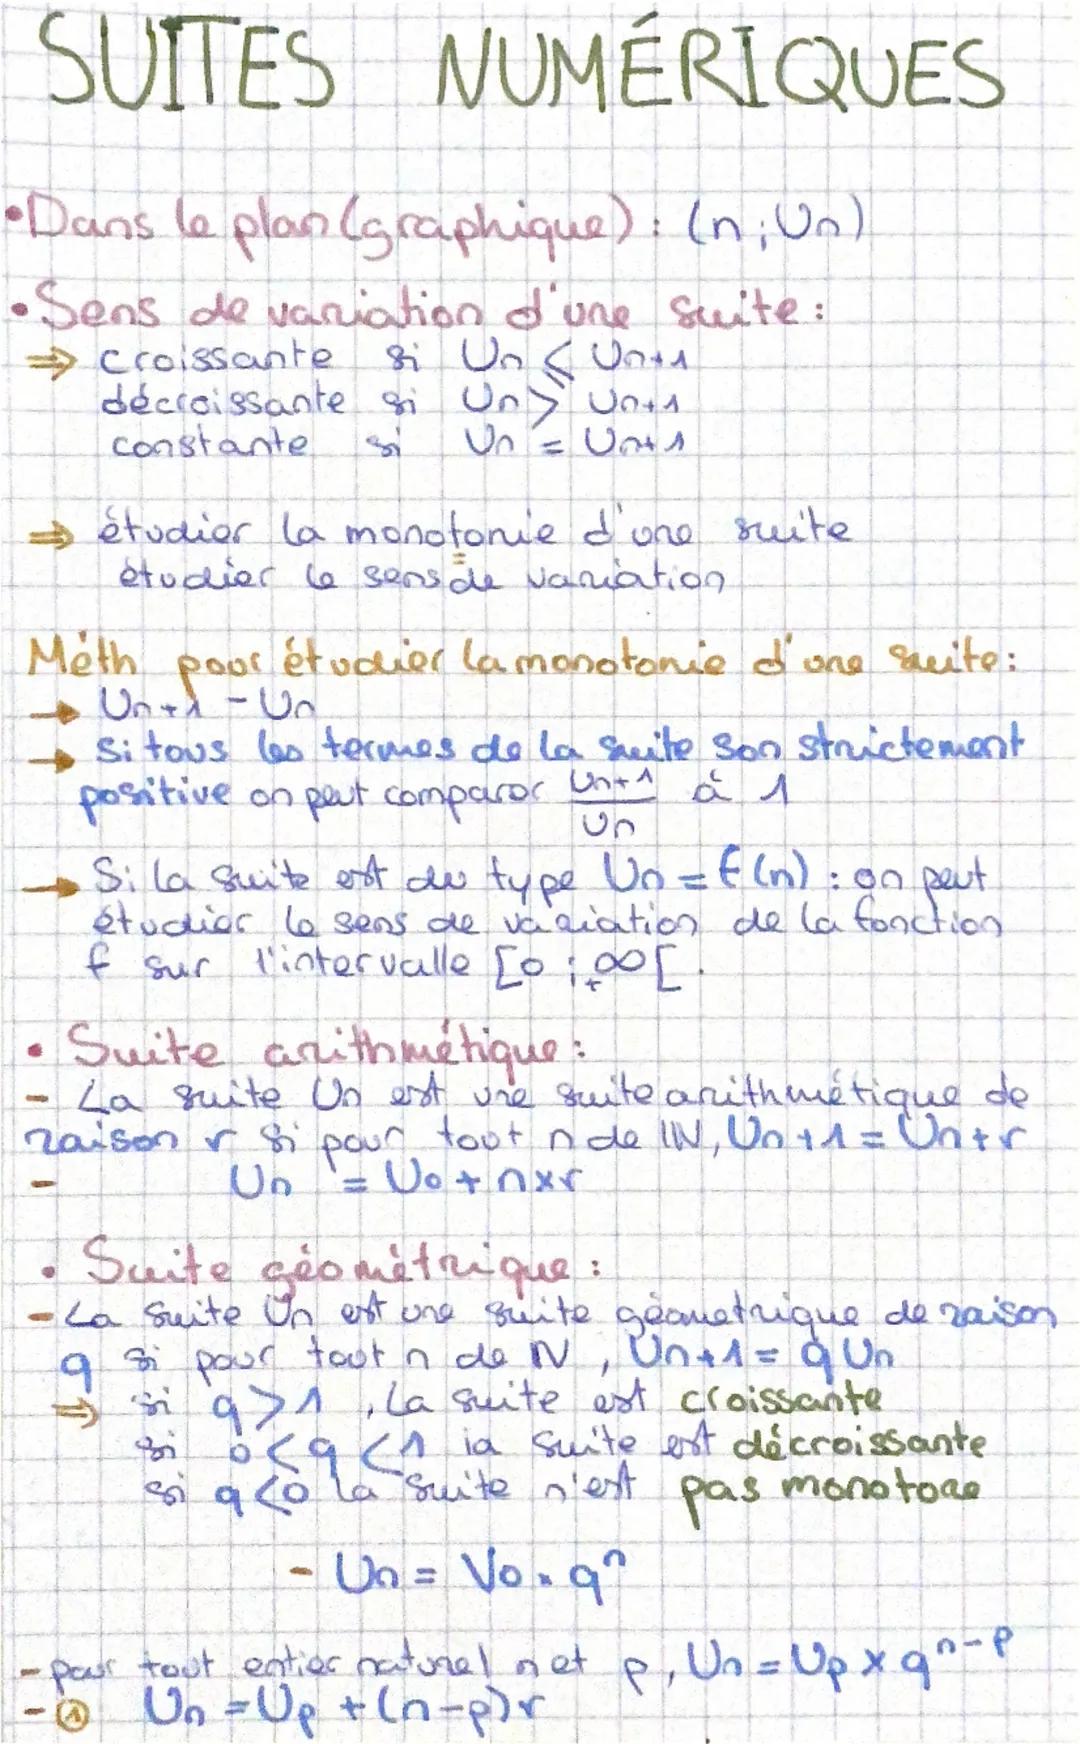 SUITES NUMÉRIQUES
•Dans le plan (graphique) : (n ; Un)
•Sens de variation d'une suite :
⇒ croissante si Un ⩽ Un+1
décroissante si Un ⩾ Un+1
constante si Un = Un+1
⇒ étudier la monotonie d'une suite
=
étudier le sens de variation
Méth pour étudier la monotonie d'une suite :
→ Un+1 - Un
→ Si tous les termes de la suite son strictement
positive on peut comparer Un+1/Un à 1
→ Si la suite est du type Un = f(n) : on peut
étudier le sens de variation de la fonction
f sur l'intervalle [0 ; +∞[.
• Suite arithmétique :
- La suite Un est une suite arithmétique de
raison r si pour tout n de IN, Un+1 = Un+r
- Un = U0 + n×r
• Suite géométrique :
- La suite Un est une suite géometrique de raison
q si pour tout n de N, Un+1 = q Un
⇒ si q > 1, la suite est croissante
si 0 < q < 1 la suite est décroissante
si q < 0 la suite n'est pas monotone
- Un = V0 . q^n
- pour tout entier naturel n et p, Un = Up × q^n-p
- ① Un = Up + (n-p)r